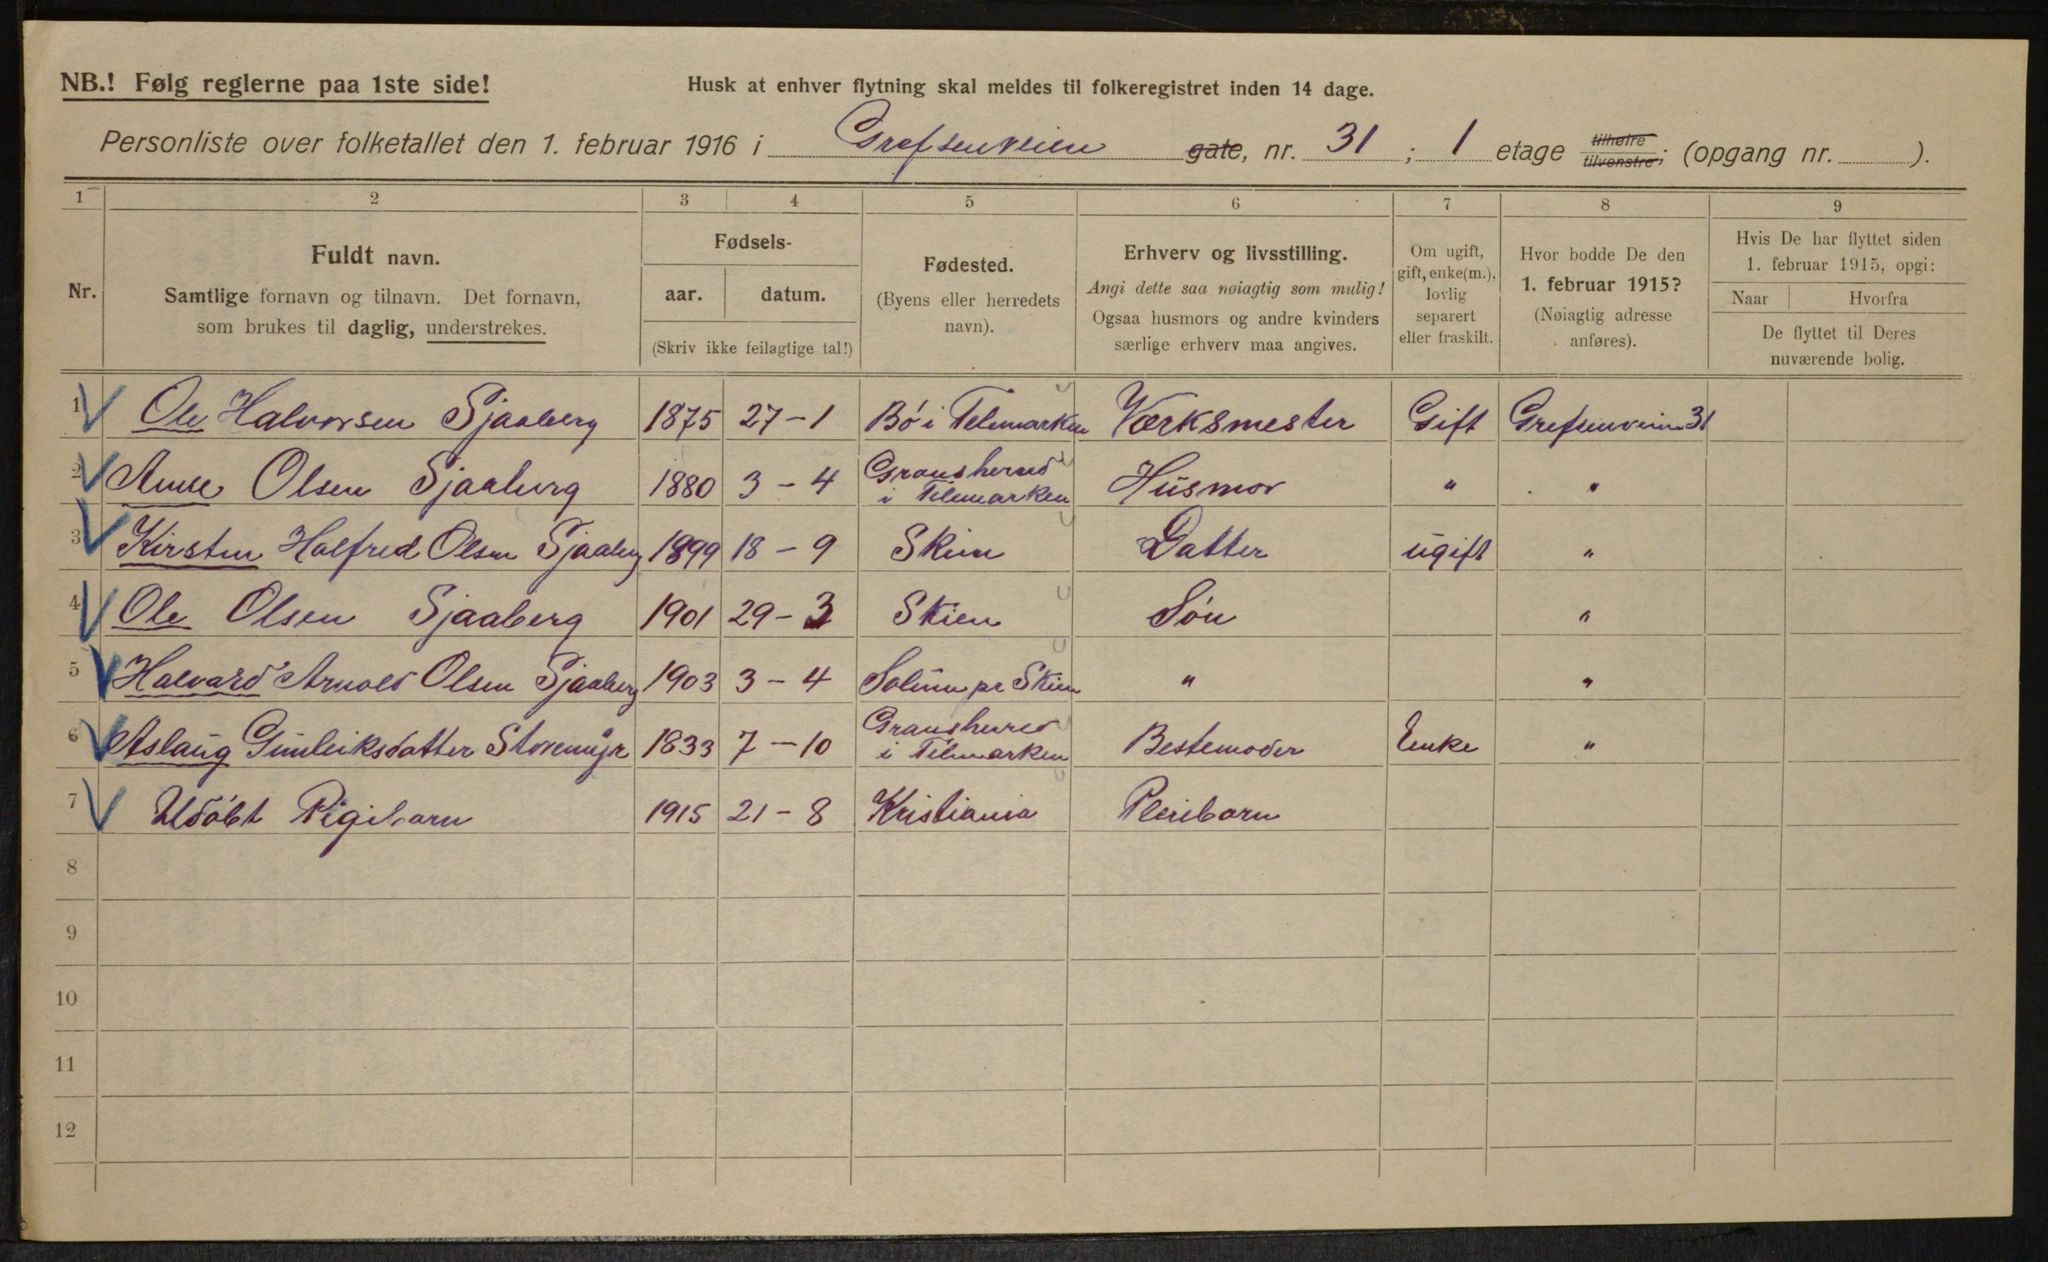 NB.! Følg reglerne paa 1ste side! Husk at enhver flytning skal meldes til folkeregistret inden 14 dage.
Personliste over folketallet den 1. februar 1916 i Grefsenveien gate, nr. 31 ; 1 etage tilhøire tilvenstre; (opgang nr. ).
1 2 3 4 5 6 7 8 9
Nr.
Fuldt navn.
Samtlige fornavn og tilnavn. Det fornavn,
som brukes til daglig, understrekes.
Fødsels-
aar. datum.
(Skriv ikke feilagtige tal!)
Fødested.
(Byens eller herredets
navn).
Erhverv og livsstilling.
Angi dette saa nøiagtig som mulig!
Ogsaa husmors og andre kvinders
særlige erhverv maa angives.
Om ugift,
gift, enke(m.),
lovlig
separert
eller fraskilt.
Hvor bodde De den
1. februar 1915?
(Nøiagtig adresse
anføres).
Hvis De har flyttet siden
1. februar 1915, opgi:
Naar Hvorfra
De flyttet til Deres
nuværende bolig.
1 Ole Halvorsen Sjaaberg 1875 27-1 Bø i Telemarken Værksmester Gift Grefsenveien 31
2 Anne Olsen Sjaaberg 1880 3-4 Gransherred i Telemarken Husmor " "
3 Kirsten Halfred Olsen Sjaaberg 1899 18-9 Skien Datter ugift "
4 Ole Olsen Sjaaberg 1901 29-3 Skien Søn "
5 Halvard Arnold Olsen Sjaaberg 1903 3-4 Solum pr Skien " "
6 Aslaug Gunleiksdatter Storemyr 1833 7-10 Gransherred i Telemarken Bestemoder Enke "
7 Udøbt Pigebarn 1915 21-8 Kristiania Pleiebarn
8
9
10
11
12